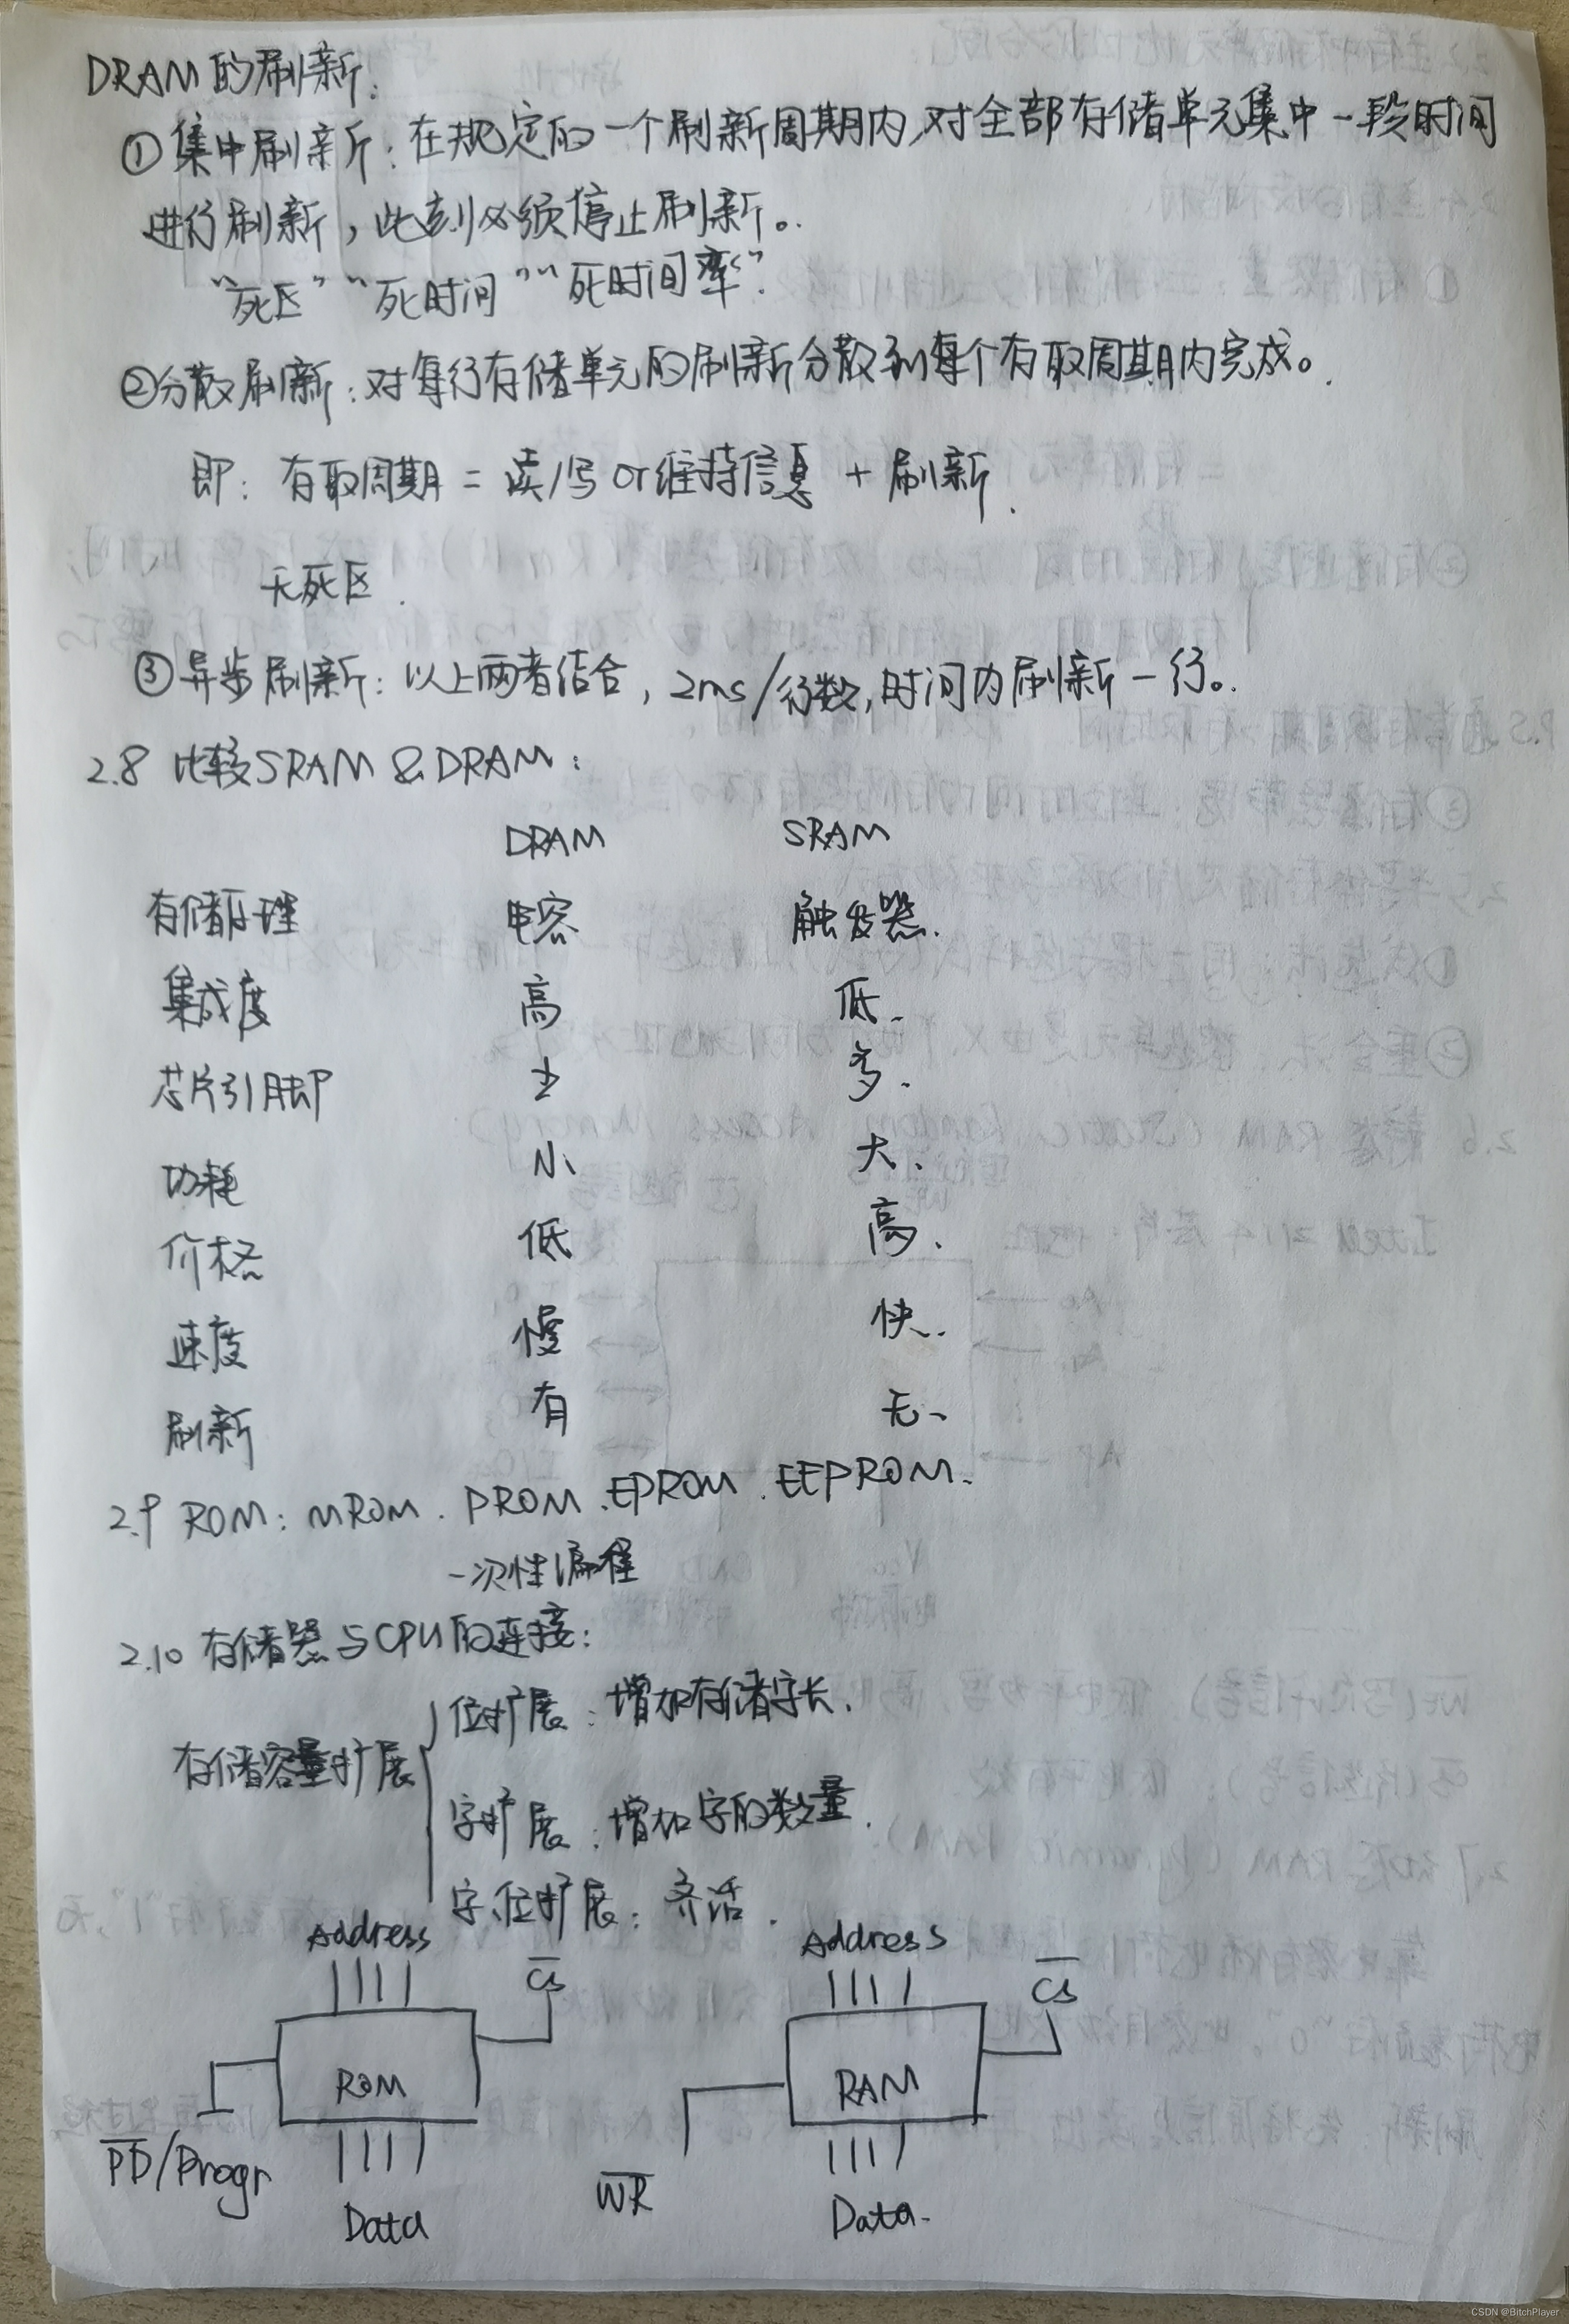 DRAM的刷新:
①集中刷新:在规定的一个刷新周期内,对全部存储单元集中一段时间
进行刷新,此刻必须停止刷新。
“死区”“死时间”“死时间率”.
②分散刷新:对每行存储单元的刷新分散到每个存取周期内完成。
即: 存取周期 = 读/写 or 维持信息 + 刷新.
无死区.
③异步刷新:以上两者结合,2ms/行数,时间内刷新一行。
2.8 比较SRAM & DRAM:
DRAM SRAM
存储原理 电容 触发器.
集成度 高 低.
芯片引脚 少 多.
功耗 小 大.
价格 低 高.
速度 慢 快.
刷新 有 无.
2.9 ROM: MROM. PROM. EPROM. EEPROM.
一次性编程
2.10 存储器与CPU的连接:
位扩展:增加存储字长.
存储容量扩展
字扩展:增加字的数量.
字、位扩展:齐活.
Address CS Address CS
ROM RAM
PD/Progr WR
Data Data.
CSDN @BitchPlayer